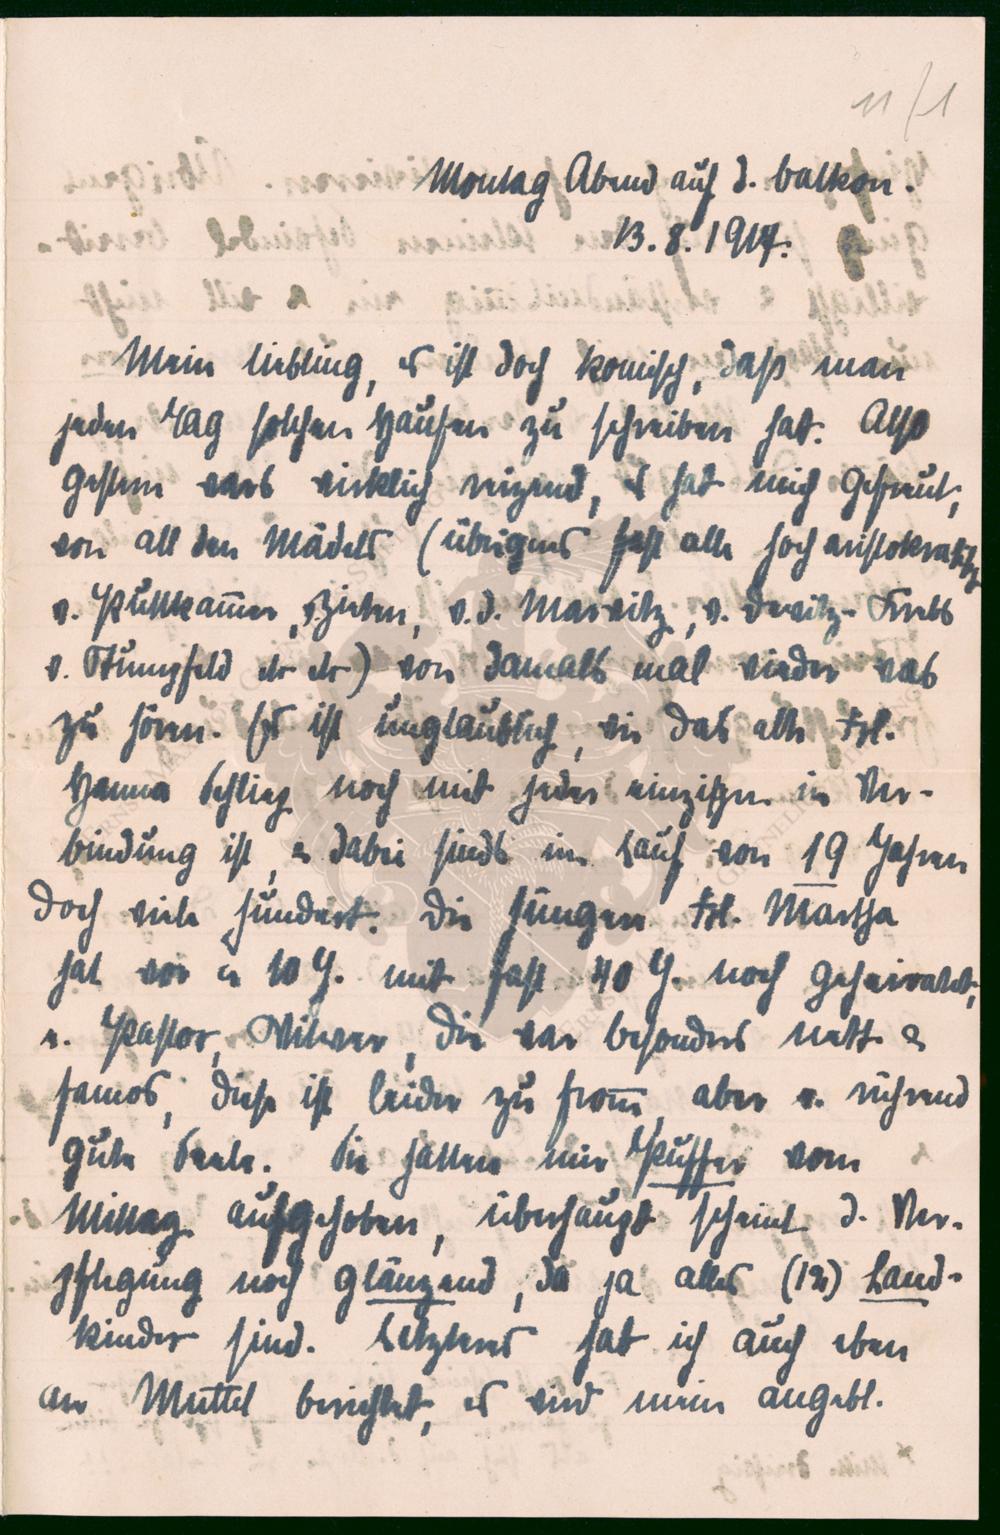 11/1
Montag Abend auf d. Balkon.
13. 8. 1917.
Mein Liebling, es ist doch komisch, daß man
jeden Tag solchen Haufen zu schreiben hat. Also
gestern wars wirklich reizend, es hat mich gefreut,
von all den Mädels (übrigens fast alle hocharistokratisch
v. Puttkam̅er, v. Zieten, v. d. Marwitz, v. Dewitz-Krebs
v. Stumpfeld etc etc) von damals mal wieder was
zu hören. Es ist unglaublich, wie das alte Frl.
Hanna Schliep noch mit jeder einzigen in Ver-
bindung ist, u dabei sinds im Lauf von 19 Jahren
doch viele hundert. Die jüngere Frl. Martha
hat vor c 10 J. mit fast 40 J. noch geheiratet,
e. Pastor, die war besonders nett u
famos, diese ist leider zu from̅, aber e. rührend
gute Seele. Sie hatten mir Puffer vom
Mittag aufgehoben, überhaupt scheint d. Ver-
pflegung noch glänzend, da ja alles (12) Land-
kinder sind. Letzteres hat ich auch eben
an Muttel berichtet, es wird mein angebl.